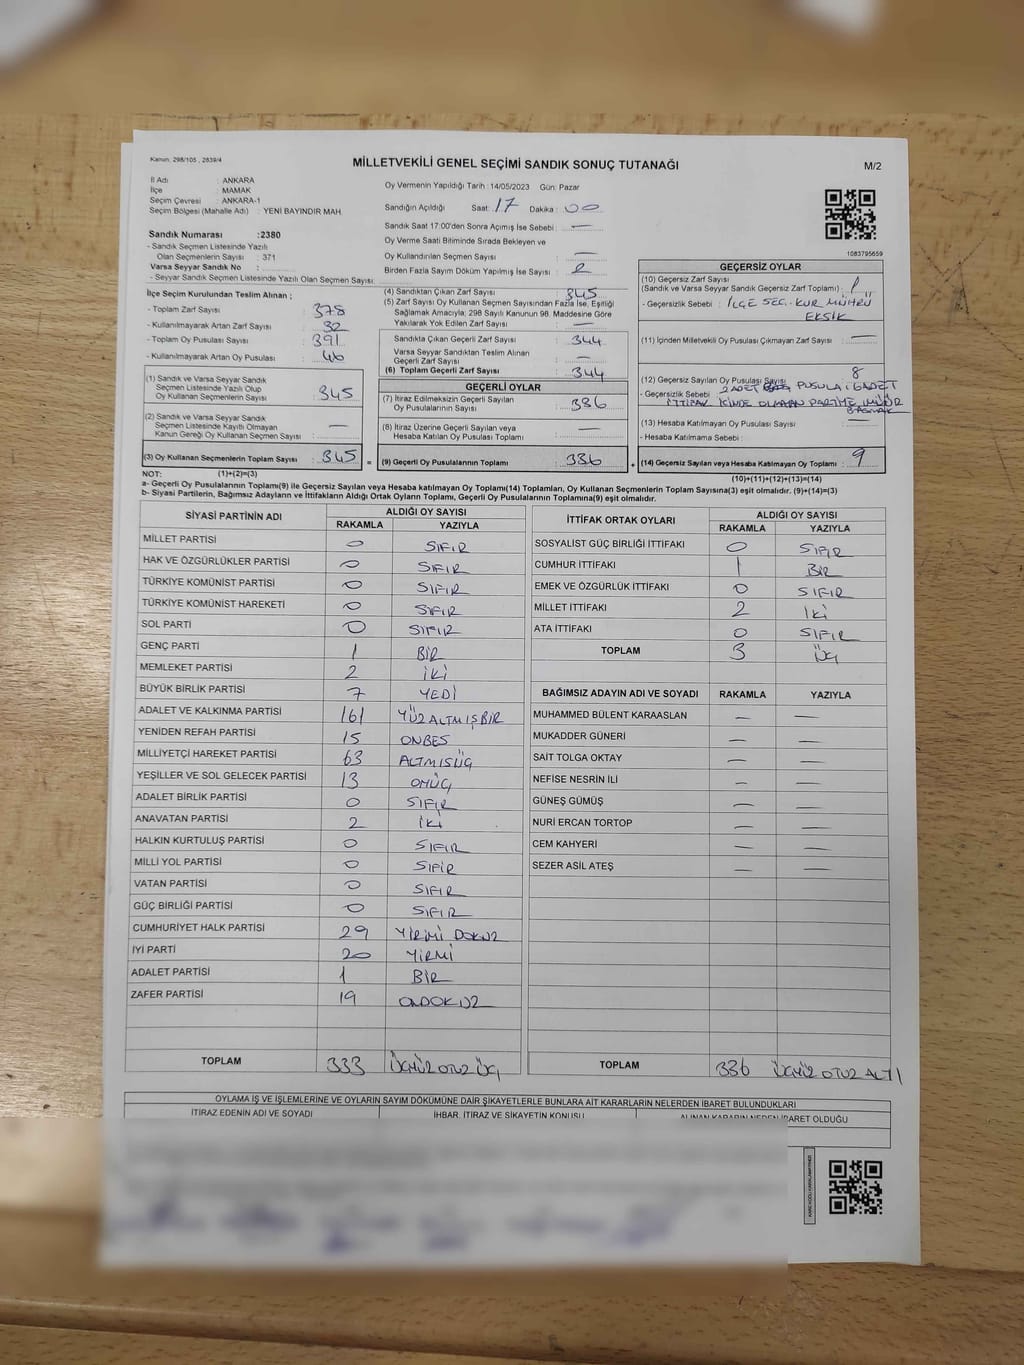 Kanun, 298/105 , 2839/4
MİLLETVEKİLİ GENEL SEÇİMİ SANDIK SONUÇ TUTANAĞI
M/2
İl Adı : ANKARA
İlçe : MAMAK
Seçim Çevresi : ANKARA-1
Seçim Bölgesi (Mahalle Adı) : YENİ BAYINDIR MAH.
Sandık Numarası : 2380
- Sandık Seçmen Listesinde Yazılı
Olan Seçmenlerin Sayısı : 371
Varsa Seyyar Sandık No :
- Seyyar Sandık Listesinde Yazılı Olan Seçmen Sayısı:
İlçe Seçim Kurulundan Teslim Alınan ;
- Toplam Zarf Sayısı : 378
- Kullanılmayarak Artan Zarf Sayısı : 32
- Toplam Oy Pusulası : 391
- Kullanılmayarak Artan Oy Pusulası : 46
(1) Sandık ve Varsa Seyyar Sandık
Seçmen Listesinde Yazılı Olup
Oy Kullanan Seçmenlerin Sayısı : 345
(2) Sandık ve Varsa Seyyar Sandık
Seçmen Listesinde Kayıtlı Olmayan
Kanun Gereği Oy Kullanan Seçmen Sayısı : —
(3) Oy Kullanan Seçmenlerin Toplam Sayısı : 345 =
Oy Vermenin Yapıldığı Tarih : 14/05/2023 Gün: Pazar
Sandığın Açıldığı Saat : 17 Dakika : 00
Sandık Saat 17:00'den Sonra Açımış İse Sebebi : —
Oy Verme Saati Bitiminde Sırada Bekleyen ve
Oy Kullandırılan Seçmen Sayısı : —
Birden Fazla Sayım Döküm Yapılmış İse Sayısı : 2
(4) Sandıktan Çıkan Zarf Sayısı : 345
(5) Zarf Sayısı Oy Kullanan Seçmen Sayısından Fazla İse, Eşitliği
Sağlamak Amacıyla; 298 Sayılı Kanunun 98. Maddesine Göre
Yakılarak Yok Edilen Zarf Sayısı : —
Sandıkta Çıkan Geçerli Zarf Sayısı : 344
Varsa Seyyar Sandıktan Teslim Alınan
Geçerli Zarf Sayısı : —
(6) Toplam Geçerli Zarf Sayısı : 344
GEÇERLİ OYLAR
(7) İtiraz Edilmeksizin Geçerli Sayılan
Oy Pusulalarının Sayısı : 336
(8) İtiraz Üzerine Geçerli Sayılan veya
Hesaba Katılan Oy Pusulası Toplamı : —
(9) Geçerli Oy Pusulalarının Toplamı : 336 +
1083795659
GEÇERSİZ OYLAR
(10) Geçersiz Zarf Sayısı
(Sandık ve Varsa Seyyar Sandık Geçersiz Zarf Toplamı) : 1
- Geçersizlik Sebebi : İLÇE SEÇ. KUR MÜHRÜ
EKSİK
(11) İçinden Milletvekili Oy Pusulası Çıkmayan Zarf Sayısı : —
(12) Geçersiz Sayılan Oy Pusulası Sayısı : 8
- Geçersizlik Sebebi : 2 ADET PUSULA
İTTİFAK İÇİNDE OLMAYAN PARTİYE MÜHÜR
BASMAK
(13) Hesaba Katılmayan Oy Pusulası Sayısı : —
- Hesaba Katılmama Sebebi :
(14) Geçersiz Sayılan veya Hesaba Katılmayan Oy Toplamı : 9
NOT: (1)+(2)=(3)
(10)+(11)+(12)+(13)=(14)
a- Geçerli Oy Pusulalarının Toplamı(9) ile Geçersiz Sayılan veya Hesaba Katılmayan Oy Toplamı(14) Toplamları, Oy Kullanan Seçmenlerin Toplam Sayısına(3) eşit olmalıdır. (9)+(14)=(3)
b- Siyasi Partilerin, Bağımsız Adayların ve İttifakların Aldığı Ortak Oyların Toplamı, Geçerli Oy Pusulalarının Toplamına(9) eşit olmalıdır.
SİYASİ PARTİNİN ADI ALDIĞI OY SAYISI
RAKAMLA YAZIYLA
MİLLET PARTİSİ 0 SIFIR
HAK VE ÖZGÜRLÜKLER PARTİSİ 0 SIFIR
TÜRKİYE KOMÜNİST PARTİSİ 0 SIFIR
TÜRKİYE KOMÜNİST HAREKETİ 0 SIFIR
SOL PARTİ 0 SIFIR
GENÇ PARTİ 1 BİR
MEMLEKET PARTİSİ 2 İKİ
BÜYÜK BİRLİK PARTİSİ 7 YEDİ
ADALET VE KALKINMA PARTİSİ 161 YÜZALTMIŞBİR
YENİDEN REFAH PARTİSİ 15 ONBEŞ
MİLLİYETÇİ HAREKET PARTİSİ 63 ALTMIŞÜÇ
YEŞİLLER VE SOL GELECEK PARTİSİ 13 ONÜÇ
ADALET BİRLİK PARTİSİ 0 SIFIR
ANAVATAN PARTİSİ 2 İKİ
HALKIN KURTULUŞ PARTİSİ 0 SIFIR
MİLLİ YOL PARTİSİ 0 SIFIR
VATAN PARTİSİ 0 SIFIR
GÜÇ BİRLİĞİ PARTİSİ 0 SIFIR
CUMHURİYET HALK PARTİSİ 29 YİRMİ DOKUZ
İYİ PARTİ 20 YİRMİ
ADALET PARTİSİ 1 BİR
ZAFER PARTİSİ 19 ONDOKUZ
TOPLAM 333 ÜÇYÜZ OTUZ ÜÇ
İTTİFAK ORTAK OYLARI ALDIĞI OY SAYISI
RAKAMLA YAZIYLA
SOSYALIST GÜÇ BİRLİĞİ İTTİFAKI 0 SIFIR
CUMHUR İTTİFAKI 1 BİR
EMEK VE ÖZGÜRLÜK İTTİFAKI 0 SIFIR
MİLLET İTTİFAKI 2 İKİ
ATA İTTİFAKI 0 SIFIR
TOPLAM 3 ÜÇ
BAĞIMSIZ ADAYIN ADI VE SOYADI RAKAMLA YAZIYLA
MUHAMMED BÜLENT KARAASLAN — —
MUKADDER GÜNERİ — —
SAİT TOLGA OKTAY — —
NEFİSE NESRİN İLİ — —
GÜNEŞ GÜMÜŞ — —
NURİ ERCAN TORTOP — —
CEM KAHYERİ — —
SEZER ASİL ATEŞ — —
TOPLAM 336 ÜÇYÜZ OTUZ ALTI
OYLAMA İŞ VE İŞLEMLERİNE VE OYLARIN SAYIM DÖKÜMÜNE DAİR ŞİKAYETLERLE BUNLARA AİT KARARLARIN NELERDEN İBARET BULUNDUKLARI
İTİRAZ EDENİN ADI VE SOYADI İHBAR, İTİRAZ VE ŞİKAYETİN KONUSU ALINAN KARARIN NEDEN İBARET OLDUĞU